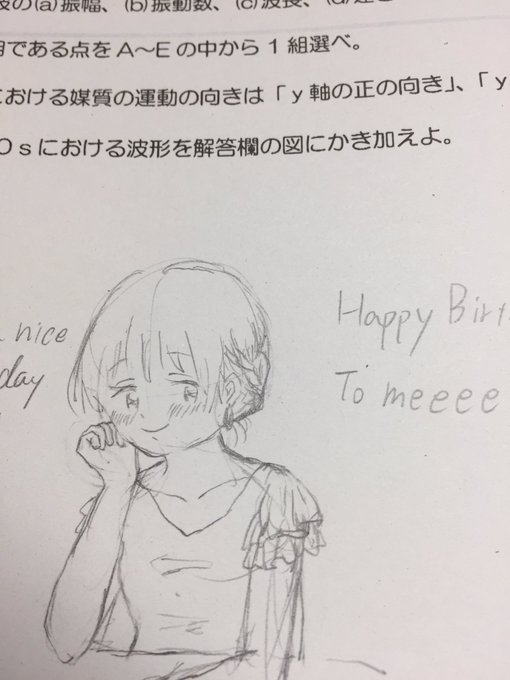 の(a)振幅、(b)振動数、(c)波長、(d)速さ
である点をA～Eの中から1組選べ。
における媒質の運動の向きは「y軸の正の向き」、「y
0sにおける波形を解答欄の図にかき加えよ。
nice
day
Happy Birt
To meeee